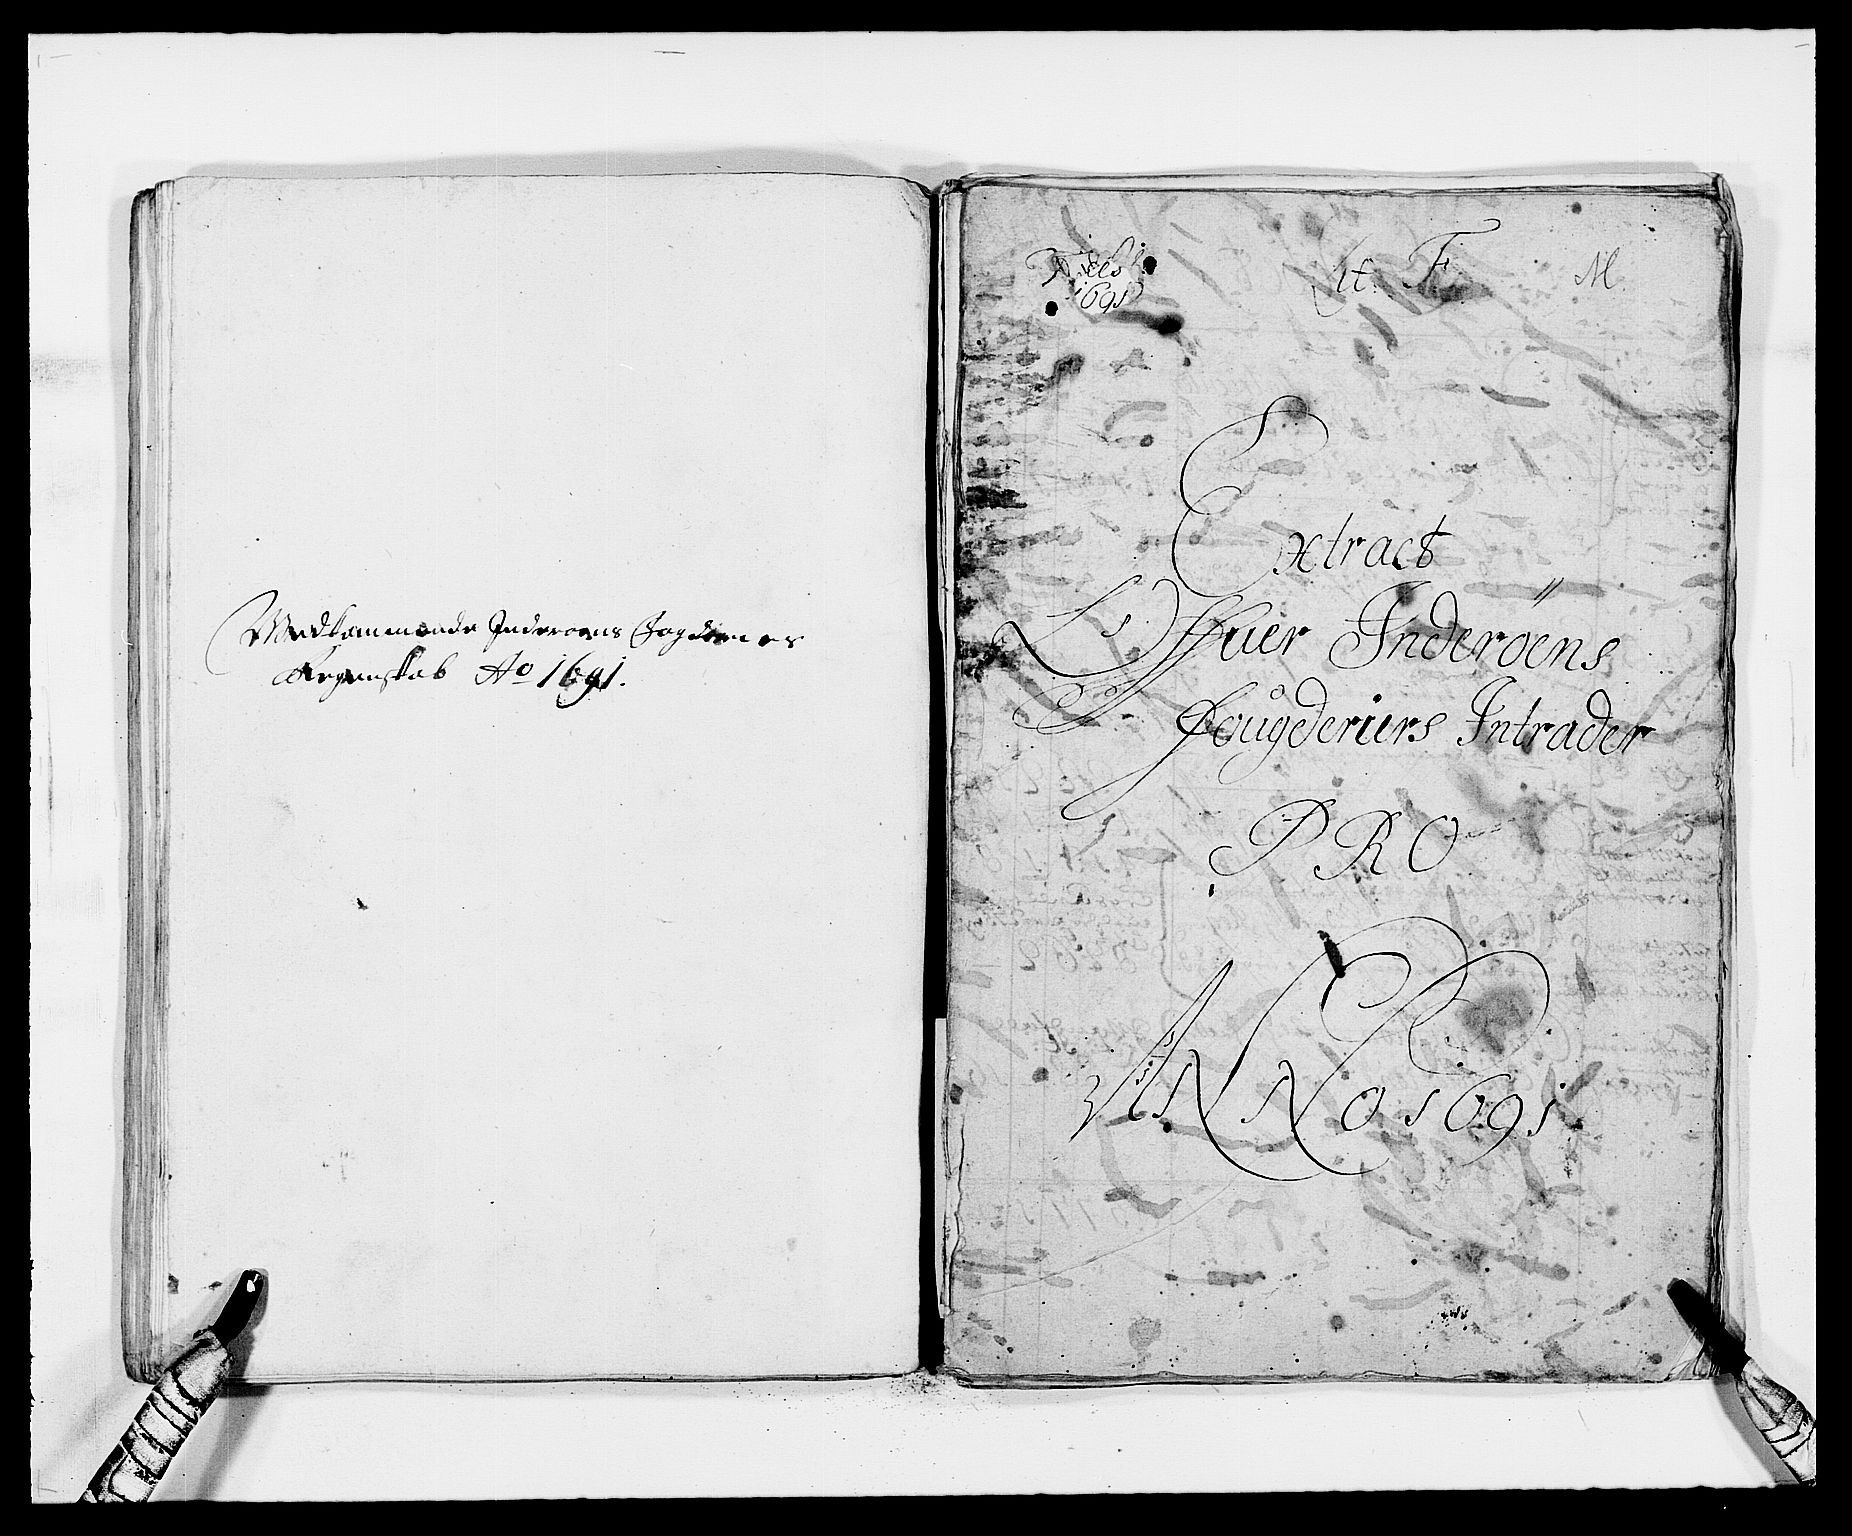 Vedkommende Inderøens Fogderies
Regenskab Ao 1691.
1691
Lit. F. M.
Extract
Offuer Inderöens
Fougderiers Intrader
PRO
ANNO 1691